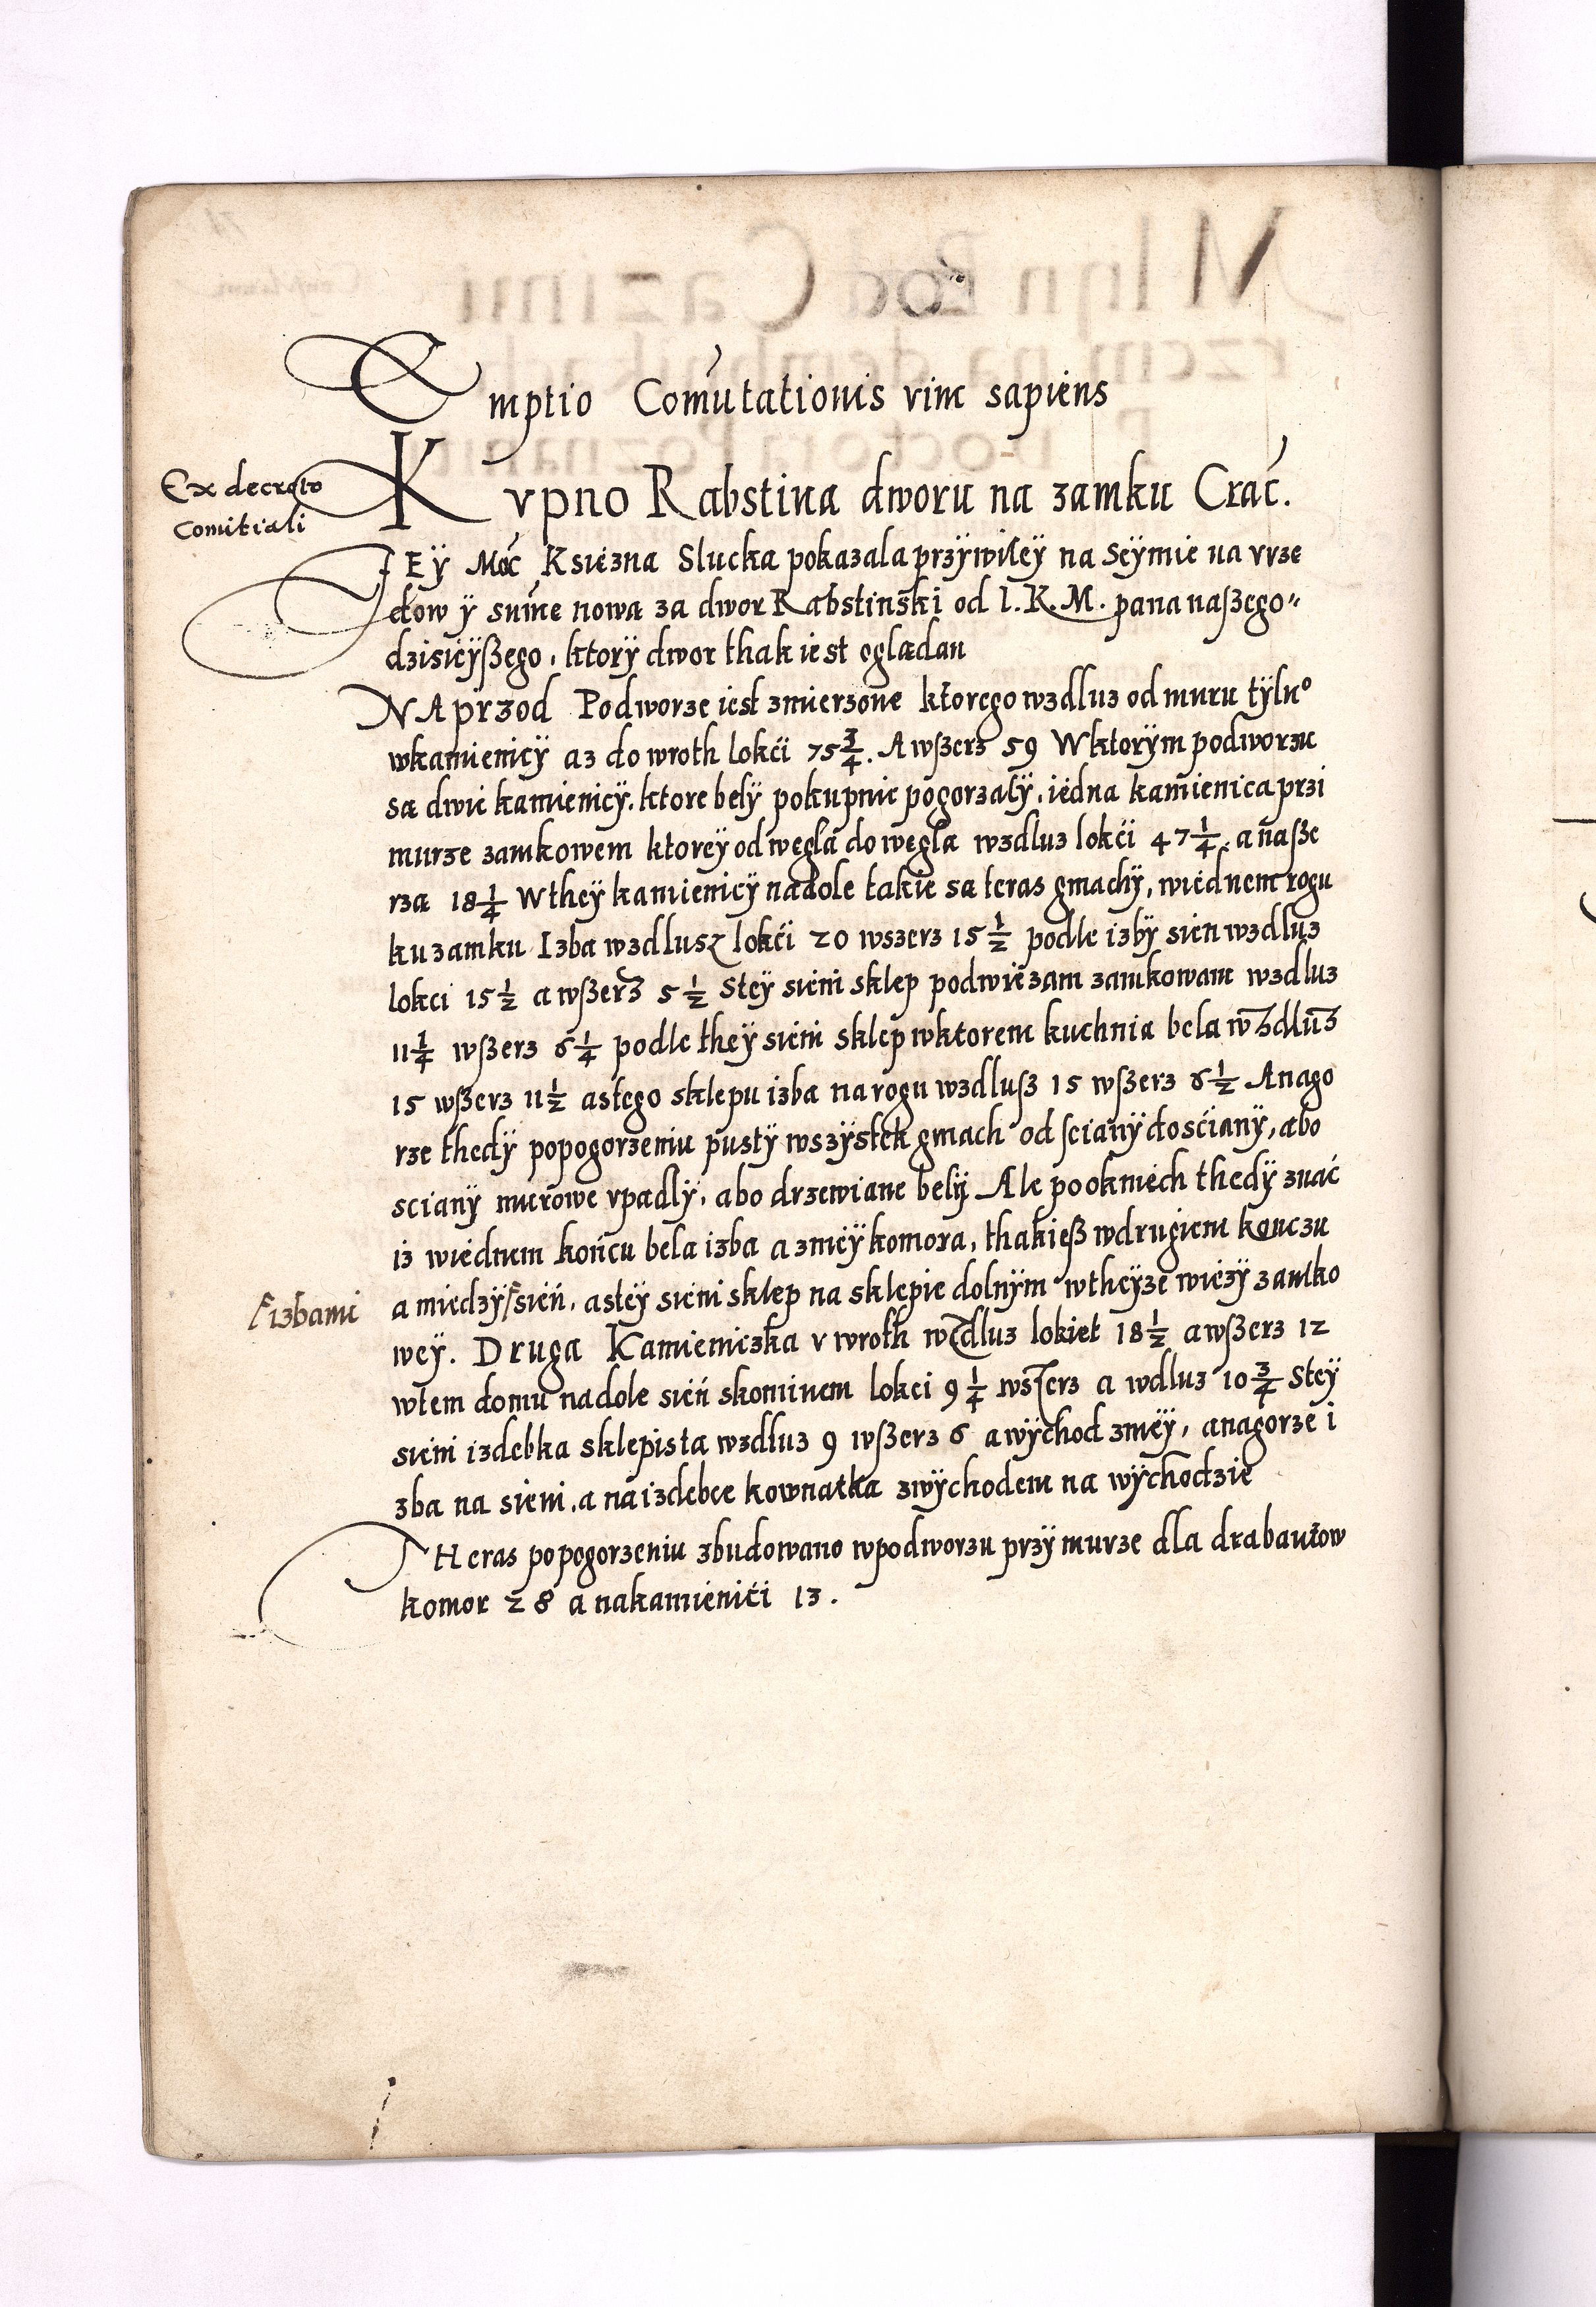 Emptio Com̄utationis vim sapiens
Ex decreto
Comitiali
Kvpno Rabstina dworu na zamku Crac̄.
IEӱ Mośc Ksiezna Slucka pokazala przӱwiley na Seӱmie na vrze
dow ӱ sum̄e nowa za dwor Rabstinski od I. K. M. pana naßego
dzisieӱßego, ktorӱ dwor thak iest oglædan
NAprzod Podworze iest zmierzone ktorego wzdluz od muru tӱln°
wkamienicӱ az do wroth lokći 75 3/4. A wßerz 59 Wktorӱm podworzu
sa dwie kamienicӱ. ktore belӱ pokupnie pogorzalӱ, iedna kamienica przi
murze zamkowem ktoreӱ od wegla do wegla wzdluz lokći 47 1/4. a naße
rza 18 1/4 W theӱ kamienicӱ nadole takie sa teras gmachӱ, wiednem rogu
ku zamku Izba wzdlusz lokći 20 wszerz 15 1/2 podle izbӱ sien wzdluz
lokci 15 1/2 a wßerz 5 1/2 Steӱ sieni sklep podwiezam zamkowam wzdluz
11 1/4 wßerz 6 1/4 podle theӱ sieni sklep wktorem kuchnia bela wzdluz
15 wßerz 11 1/2 astego sklepu izba na rogu wzdlusz 15 wßerz 6 1/2 Anago
rze thedӱ popogorzeniu pustӱ wszӱstek gmach od scianӱ dosćianӱ, abo
scianӱ murowe vpadlӱ, abo drzewiane belӱ Ale po okniech thedӱ znać
iz wiednem końcu bela izba a zmeӱ komora, thakieß wdrugiem konczu
a miedzӱ sień, asteӱ sieni sklep na sklepie dolnӱm wtheӱze wiezӱ zamko
izbami
weӱ. Druga Kamieniczka v wroth wzdluz lokiet 18 1/2 a wßerz 12
wtem domu nadole sień skominem lokci 9 1/4 wszerz a wdluz 10 3/4 Steӱ
sieni izdebka sklepista wzdluz 9 wßerz 6 a wӱchod zmeӱ, anagorze i
zba na sieni, a na izdebce kownatka zwӱchodem na wӱchodzie
THeras popogorzeniu zbudowano wpodworzu przӱ murze dla drabantow
komor 28 a nakamienići 13.